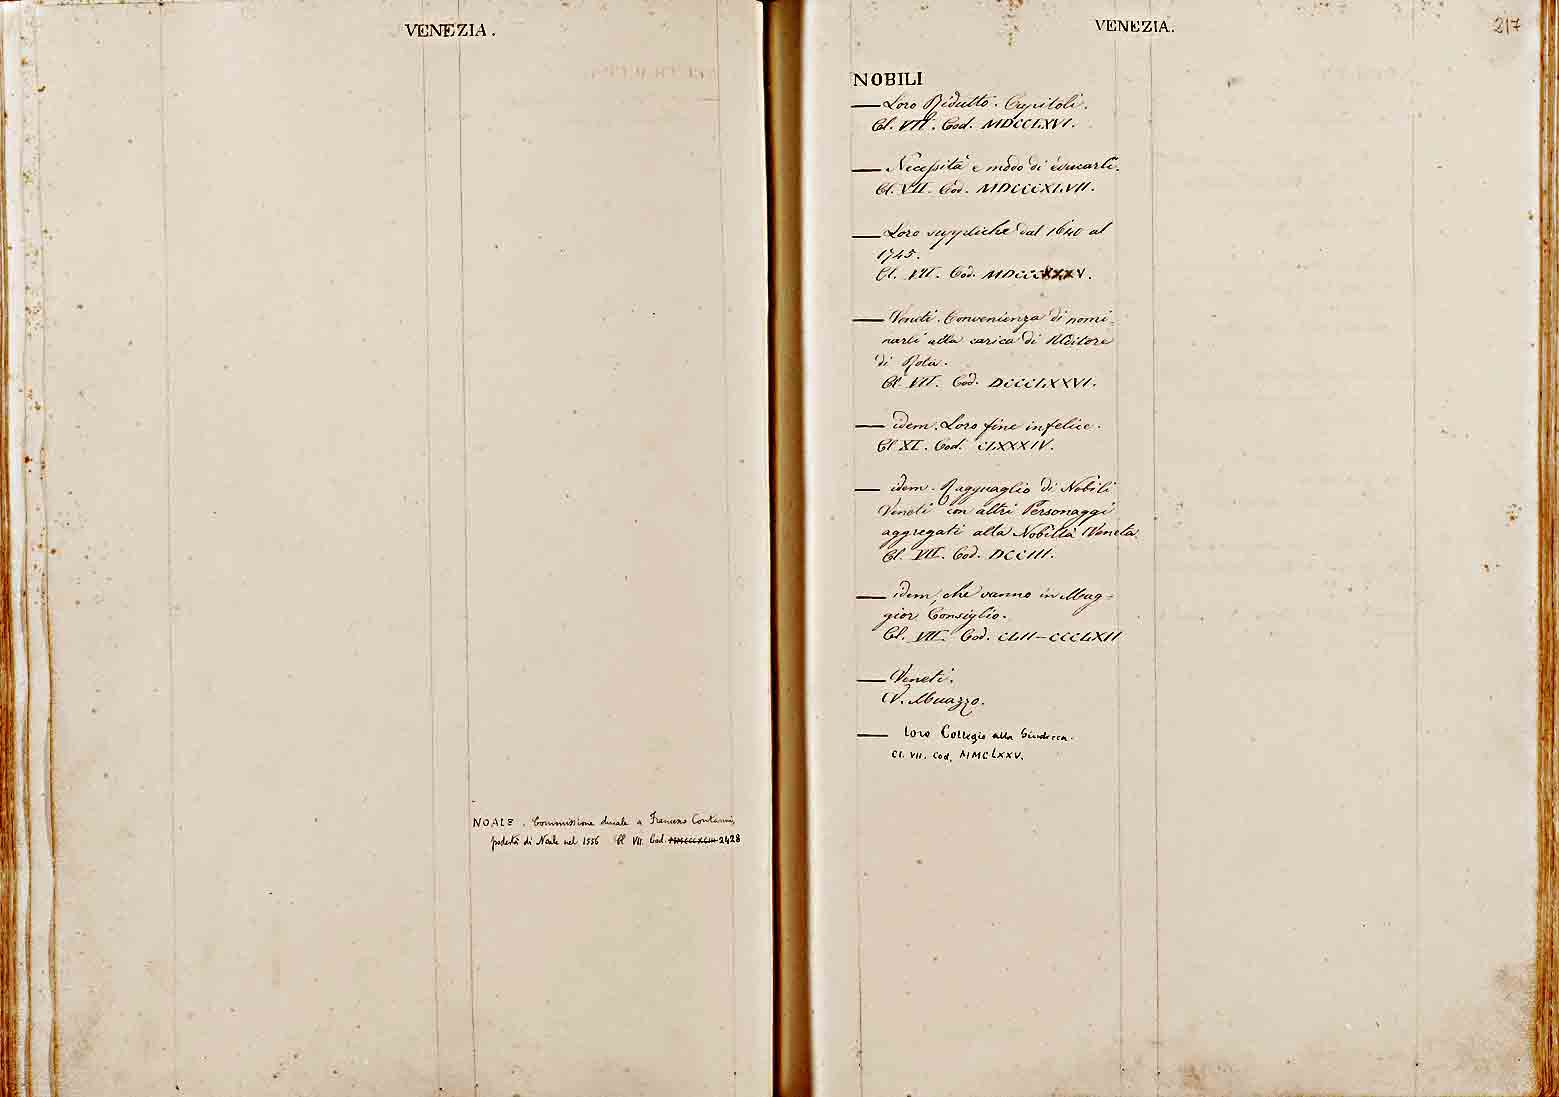 VENEZIA.
NOALE. Commissione ducale a Francesco Contarini,
podestà di Noale nel 1556 Cl VII. Cod. 2428
VENEZIA.
217
NOBILI
— Loro Ridutto. Capitoli.
Cl. VII. Cod. MDCCLXVI.
— Necessità e modo di educarli.
Cl. VII. Cod. MDCCCXLVII.
— Loro suppliche dal 1640 al
1745.
Cl. VII. Cod. MDCCCXXXV.
— Veneti. Convenienza di nomi-
narli alla carica di Uditore
di Rota.
Cl. VII. Cod. DCCCLXXVI.
— idem. Loro fine infelice.
Cl XI. Cod. CLXXXIV.
— idem. Ragguaglio di Nobili
Veneti con altri Personaggi
aggregati alla Nobiltà Veneta.
Cl. VII. Cod. DCCIII.
— idem, che vanno in Mag-
gior Consiglio.
Cl. VII. Cod. CLII–CCCLXII
— Veneti.
V. Muazzo.
— Loro Collegio alla Giudecca.
Cl. VII. Cod. MMCLXXV.